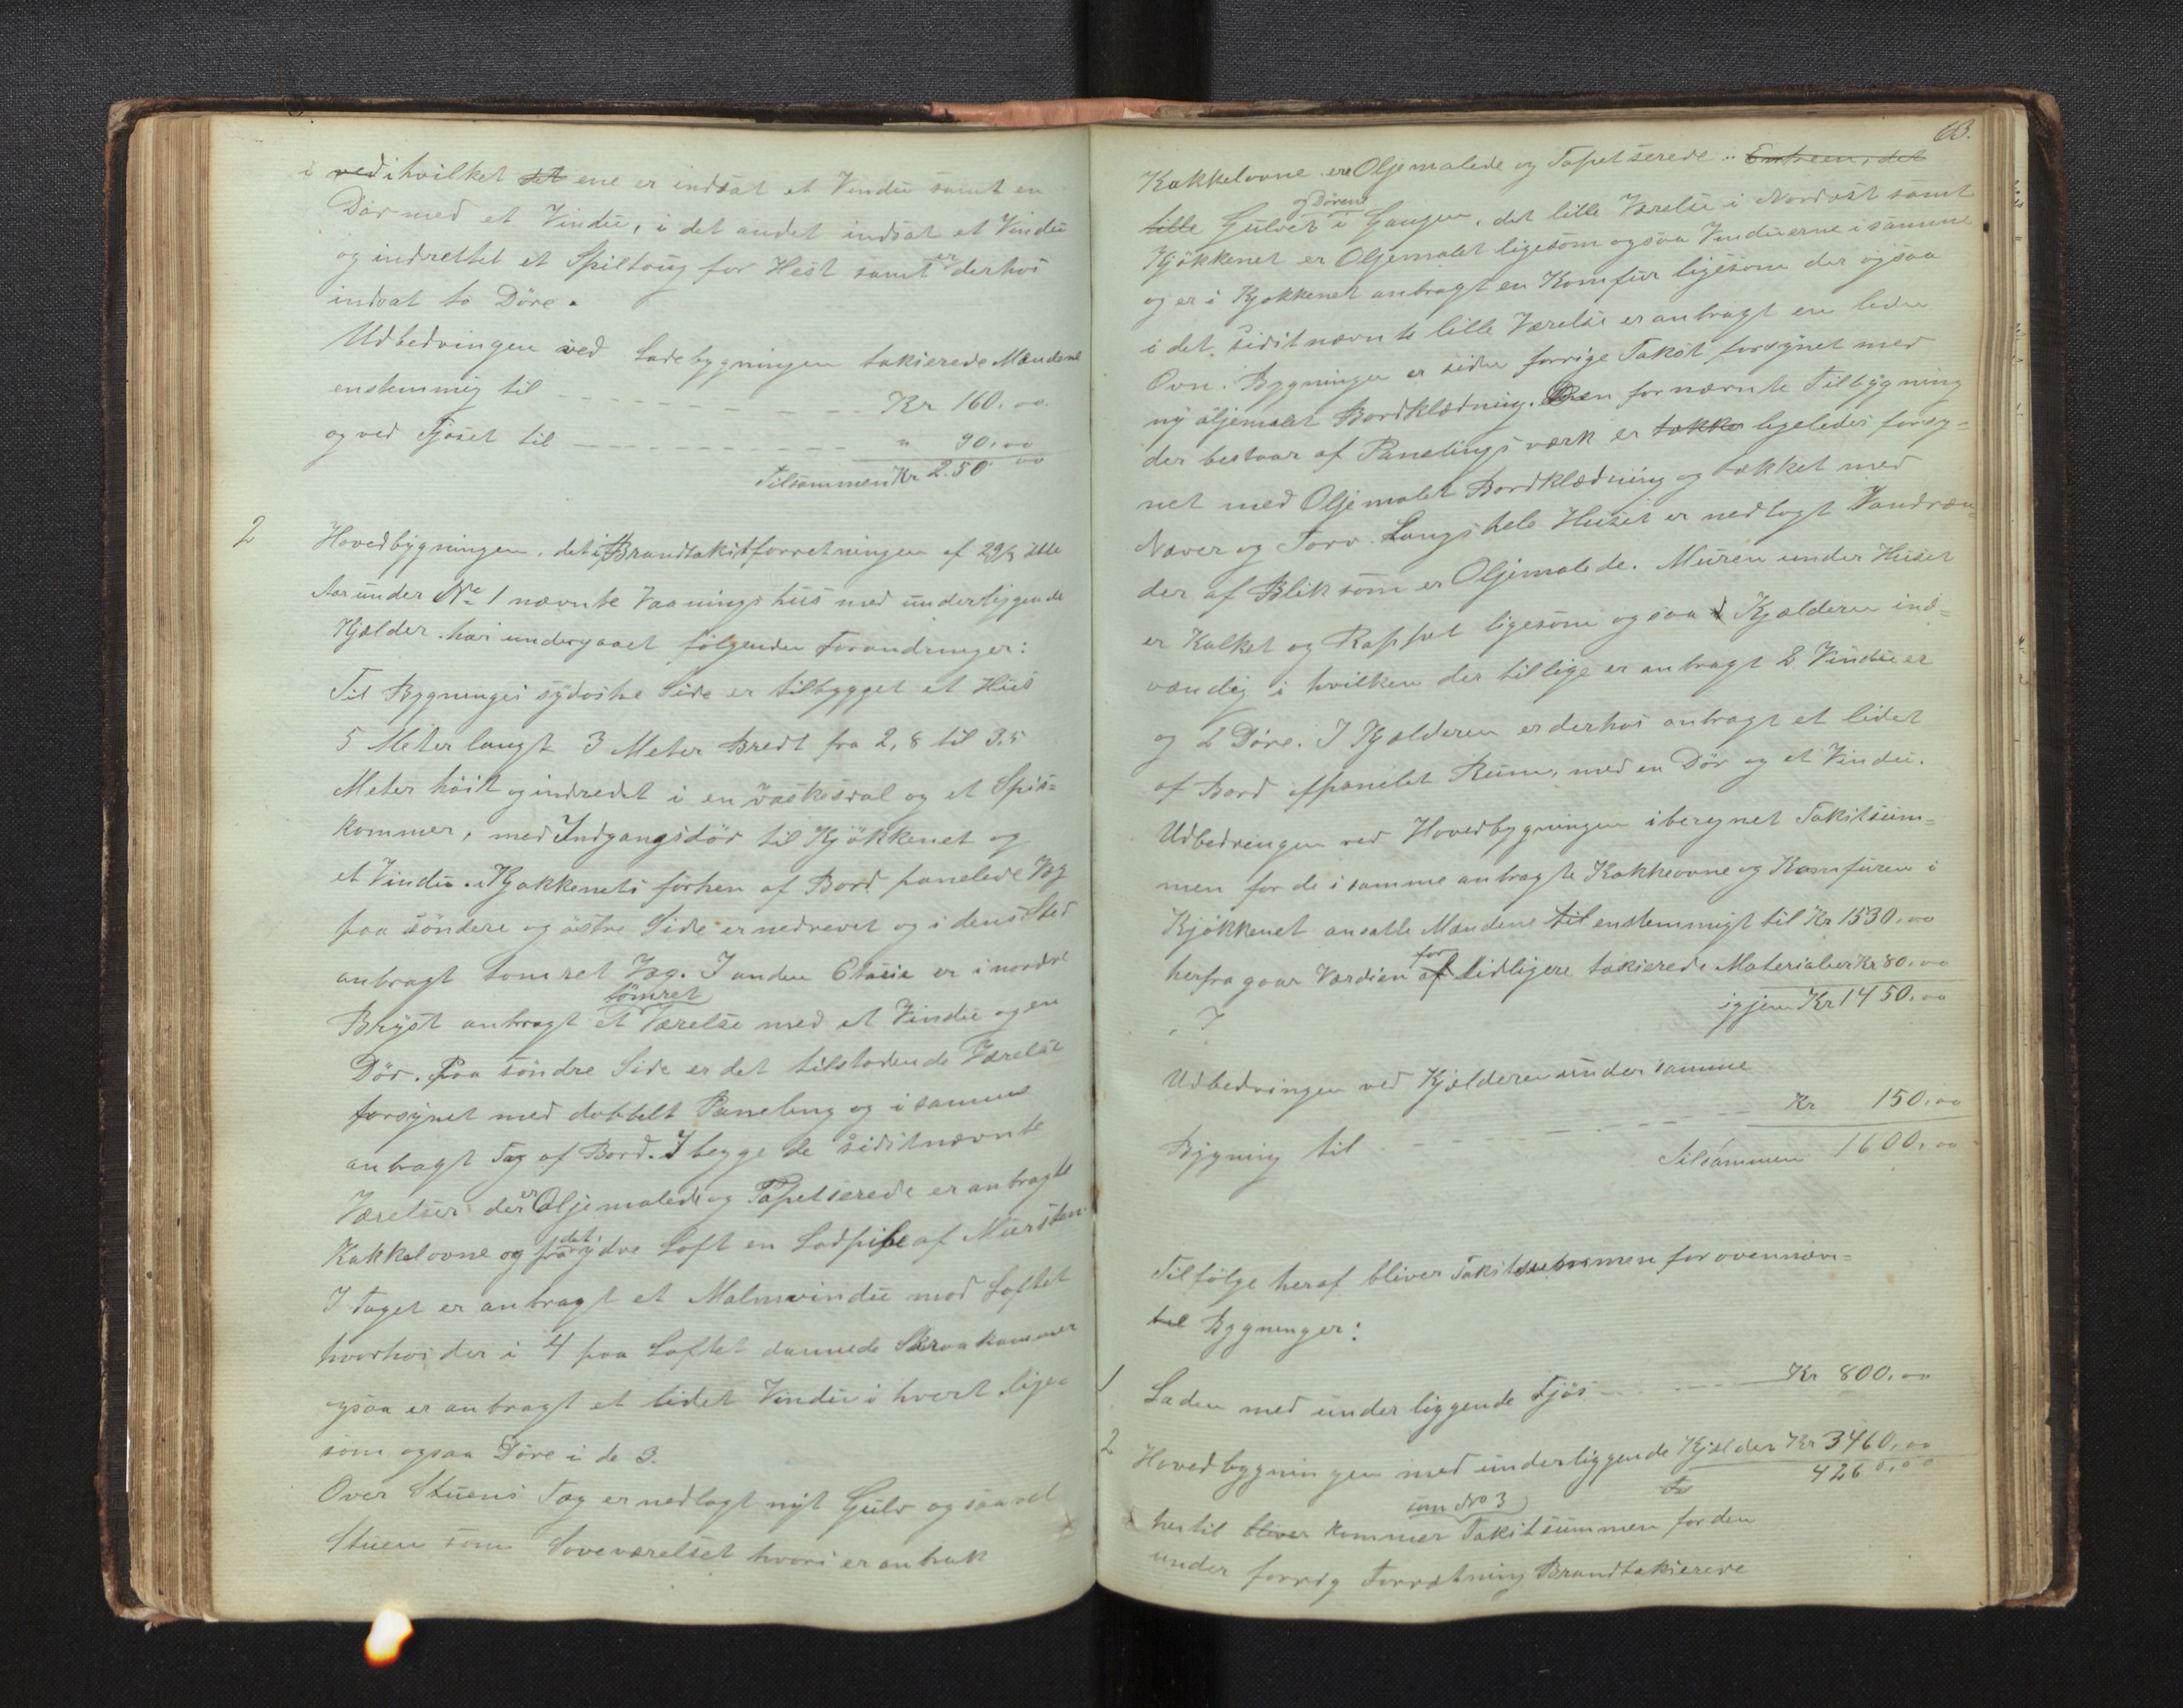 i ved i hvilket det ene er indsat et Vindu samt en
Dør med et Vindu, i det andet indsat et Vindu
og indrettet et Spiltoug for Hest samt er derhos
indsat to Döre.
Udbedringen ved Ladebygningen taxerede Mændene
enstemmig til Kr 160.00
og ved Fjøset til " 90.00
Tilsammen Kr 250 00
2 Hovedbygningen, det i Brandtakstforretningen af 29/3
Aar under No 1 nævnte Vaaningshus med underliggende
Kjelder har undergaaet følgende Forandringer:
Til Bygninges sydøstre Side er tilbygget et Hus
5 Meter langt 3 Meter Bredt fra 2,8 til 3,5
Meter höit og indredet i en og et Spis=
kammer, med Indgangsdör til Kjökkenet og
et Vindu. Kjøkkenets förhen af Bord panelede Væg
paa söndere og östre Side er nedrevet og i dens Sted
anbragt tømret Væg. I anden Etasie er i nordre
Bryst anbragt et tömret Værelse med et Vindu og en
Dör. Paa söndre Side er det tilstødende Værelse
forsynet med dobbelt Paneling og i samme
anbragt Tag af Bord. I begge de sidstnævnte
Værelser der er Oljemalede og Tapetserede er anbragte
Kakkelovne og fra det ydre Loft en Lodpibe af Mursten.
I Taget er anbragt et Malmvindu mod Loftet
hvorhos der i 4 paa Loftet dannede Skraakammer
ogsaa er anbragt et lidet Vindu i hvert lige=
som ogsaa Döre i de 3.
Over Stuens Tag er nedlagt nyt Gulv og saavel
Stuen som Soveværelset hvori er anbrakt
63.
Kakkelovne ere Oljemalede og Tapetserede. Entreen, det
lille Gulvet og Dørene i Gangen, det lille Værelse i Nordøst samt
Kjökkenet er Oljemalet ligesom ogsaa Vinduerne i samme
og er i Kjøkkenet anbragt en Komfur ligesom der ogsaa
i det sidstnævnte lille Værelse er anbragt en liden
Ovn. Bygningen er siden forrige Takst forsynet med
ny oljemalet Bordklædning. Den fornævnte Tilbygning
der bestaar af Panelingsværk er takke ligeledes forsy=
net med Oljemalet Bordklædning og tækket med
Næver og Torv. Langs hele Huset er nedlagt Vandræn=
der af Blik som er Oljemalede. Muren under Huset
er Kalket og Rappet ligesom ogsaa Kjælderen ind=
vændig i hvilken der tillige er anbragt 2 Vinduer
og 2 Döre. I Kjælderen er derhos anbragt et lidet
af Bord afpanelet Rum, med en Dör og et Vindu.
Udbedringen ved Hovedbygningen iberegnet Takstsum=
men for de i samme anbragte Kakkelovne og Komfuren i
Kjökkenet ansatte Mændene til enstemmigt til Kr 1530,00
herfra gaar Værdien af for tidligere takserede Materialier Kr 80.00
igjen Kr 1450.00
Udbedringen ved Kjælderen under samme
Bygning til Kr 150.00
Tilsammen 1600.00
Tilfölge heraf bliver Takstsummen for ovennævn=
te Bygninger:
1 Laden med underliggende Fjös Kr 800.00
2 Hovedbygningen med underliggende Kjælder Kr 3460,00
4260,00
hertil bliver kommer som No 3 Takstsummen for den
under forrig Forretning Brandtakserede